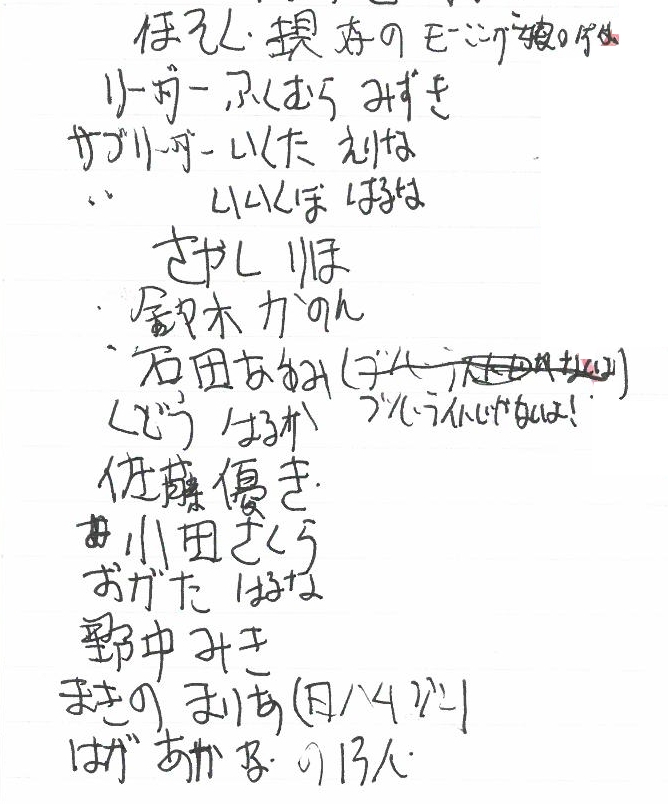 ほそく・現存のモーニング娘。
リーダー ふくむら みずき
サブリーダー いくた えりな
〃 いいくぼ はるな
さやし りほ
鈴木 かのん
石田 あゆみ(
ブルーライトじゃないよ!
くどう はるか
佐藤優き
小田 さくら
おがた はるな
野中 みき
まきの まりあ(日ハムジ
はが あかね の13人